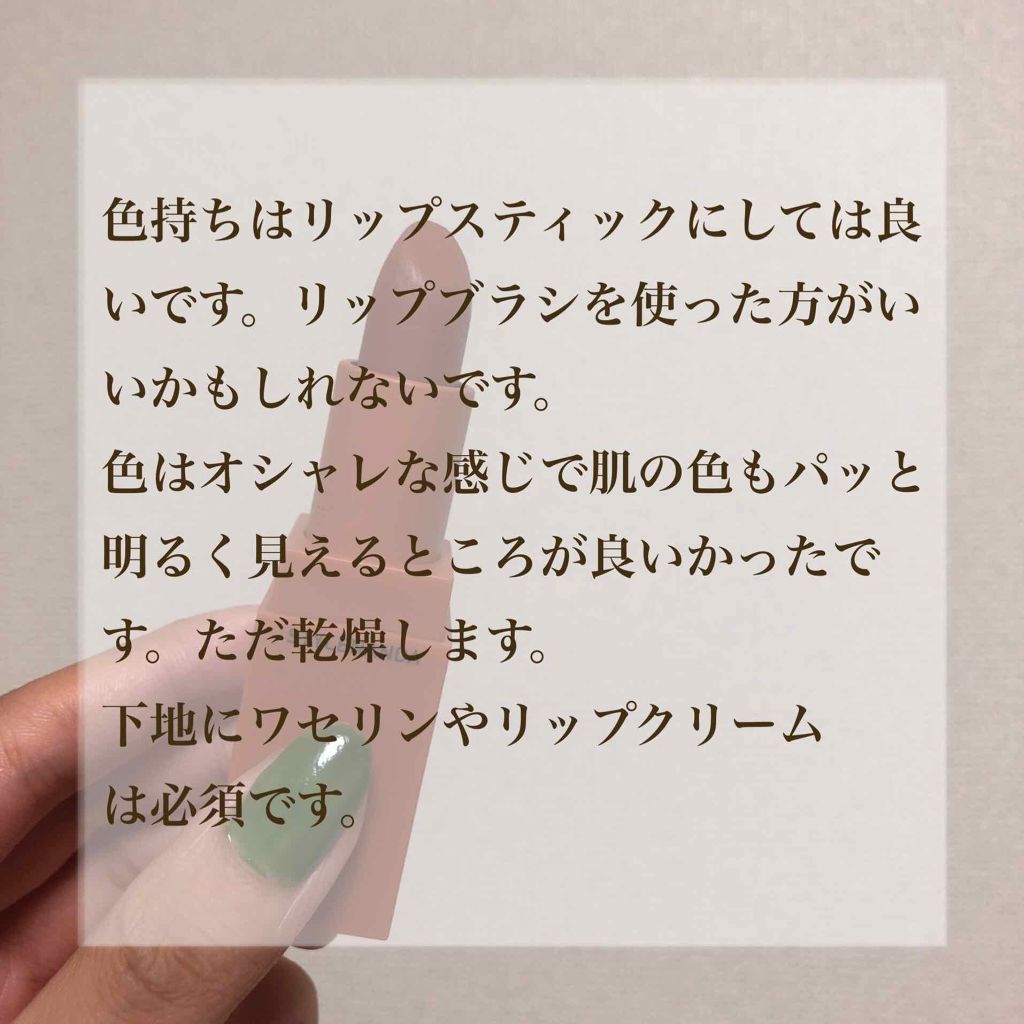 色持ちはリップスティックにしては良
いです。リップブラシを使った方がい
いかもしれないです。
色はオシャレな感じで肌の色もパッと
明るく見えるところが良いかったで
す。ただ乾燥します。
下地にワセリンやリップクリーム
は必須です。